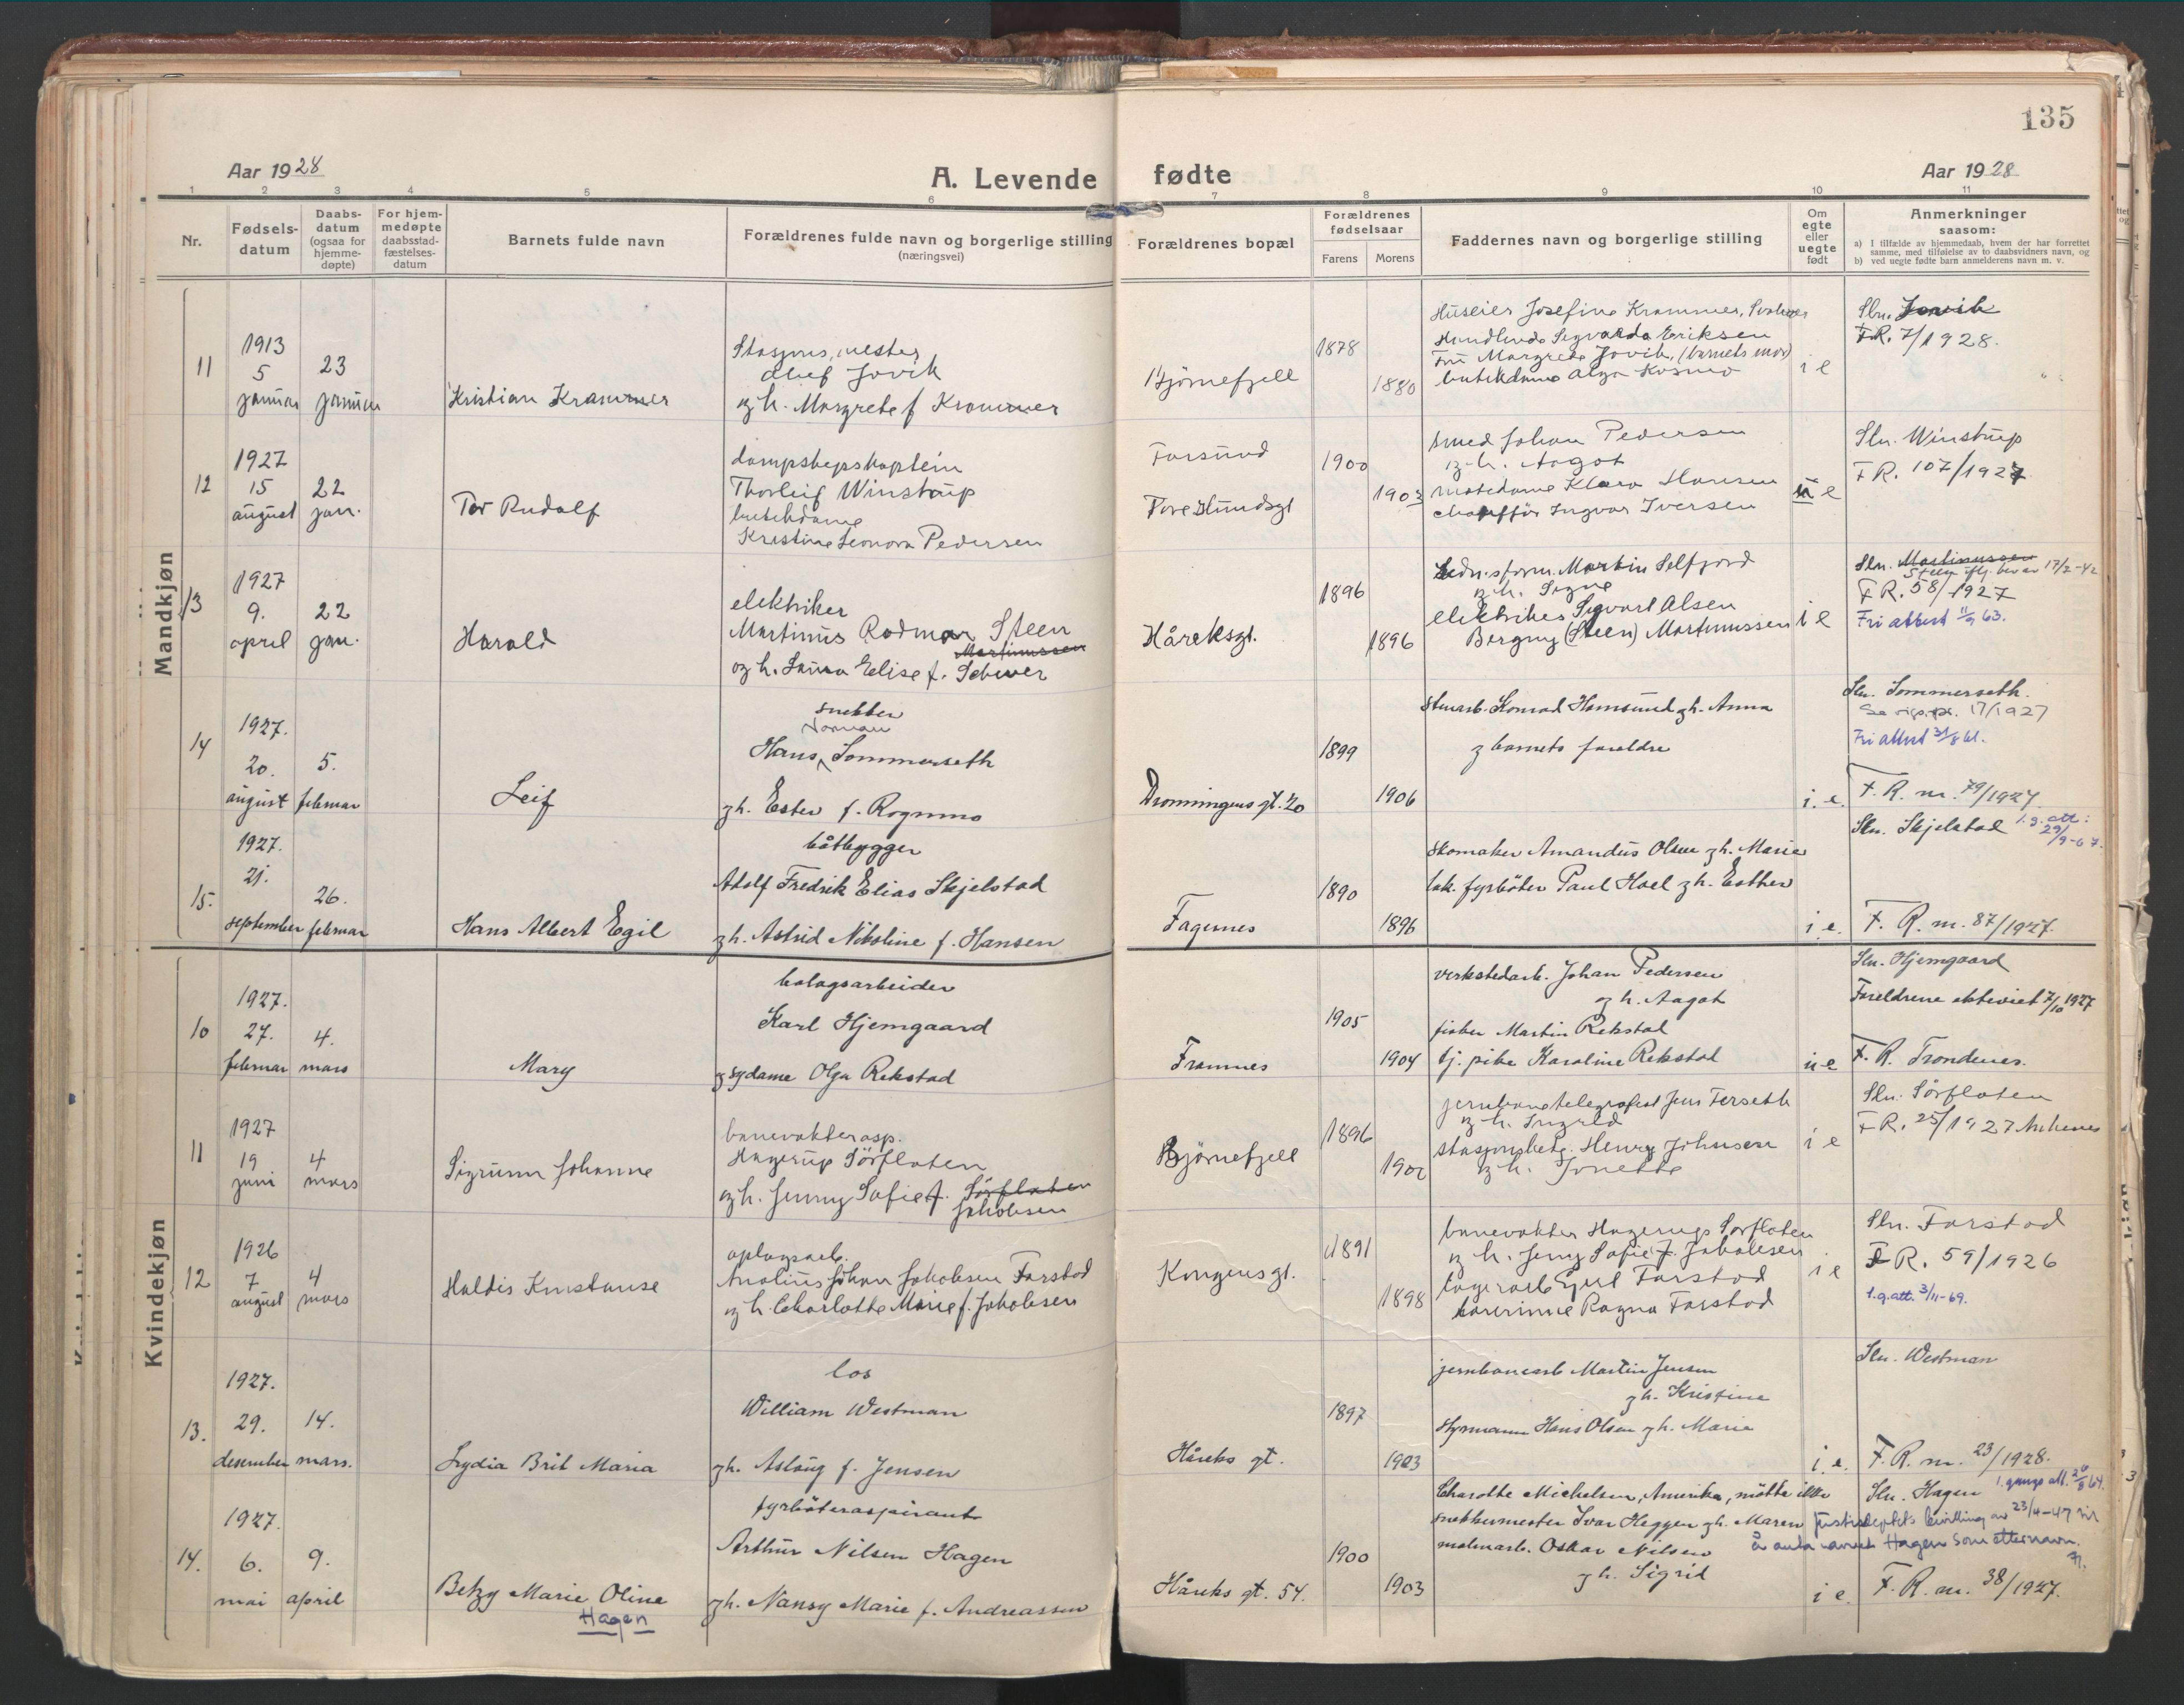 135
Aar 1928
A. Levende fødte
Aar 1928
1 2 3 4 5 6 7 8 9 10 11
Nr.
Fødsels-
datum
Daabs-
datum
(ogsaa for
hjemme-
døpte)
For hjem-
medøpte
daabsstad-
fæstelses-
datum
Barnets fulde navn
Forældrenes fulde navn og borgerlige stilling
(næringsvei)
Forældrenes bopæl
Forældrenes
fødselsaar
Farens Morens
Faddernes navn og borgerlige stilling
Om
egte
eller
uegte
født
Anmerkninger
saasom:
a) I tilfælde av hjemmedaab, hvem der har forrettet
samme, med tilføielse av to daabsvidners navn, og
b) ved uegte fødte barn anmelderens navn m. v.
Mandkjøn
11
1913
5
januar
23
januar
Kristian Krammer
Stasjonsmester
Olaf Jovik
og h. Margrete f Krammer
Bjørnefjell
1878
1880
Huseier Josefine Krammer,
Sigvarda Eriksen
Fru Margrete Jovik, (barnets mor)
butikdame Olga Kosmo
i e
Sln. Jovik
F.R. 7/1928.
12
1927
15
august
22
jan.
Tor Rudolf
dampskipskaptein
Thorleif Winstrup
butikdame
Kristine Leonora Pedersen
Farsund
Tore Hundsgt
1900
1903
smed Johan Pedersen
og h. Aagot
motedame Klara Hansen
chauffør Ingvar Iversen
u e
Sln. Winstrup
F R. 107/1927
13
1927
9.
april
22
jan.
Harald
elektriker
Martinus Rodmar Steen
Martinussen
og h. Laura Elise f. Schwer
Håreksgt.
1896
1896
Ledn.sform. Martin Selfjord
og h. Signe
elektriker Sigvart Olsen
Borgny (Steen) Martinussen
i e
Sln. Martinussen
Steen iflg. bev av 17/2-42
F R. 58/1927
Fri attest 11/9 63.
14
1927.
20.
august
5.
februar
Leif
snekker
Norman
Hans Sommerseth
og h. Ester f. Rognmo
Dronningens gt. 20
1899
1906
stenarb. Konrad Hamsund og h. Anna
og barnets foreldre
i. e.
Sln. Sommerseth.
17/1927
Fri attest 31/8 61.
F. R. nr. 79/1927.
15.
1927.
21.
september
26.
februar
Hans Albert Egil
båtbygger
Adolf Fredrik Elias Skjelstad
og h. Astrid Nikoline f. Hansen
Fagernes
1890
1896
skomaker Amandus Olsen og h. Marie
lok. fyrbøter Paul Hoel og h. Esther
i. e.
Sln. Skjelstad 1. g. att:
29/9-67.
F. R. nr. 87/1927.
Kvindekjøn
10
1927.
27.
februar
4.
mars
Mary
bolagsarbeider
Karl Hjemgaard
og sydame Olga Rekstad
Framnes
1905
1904
verkstedarb. Johan Pedersen
og h. Aagot
fisker Martin Rekstad
tj. pike Karoline Rekstad
u e
Sln. Hjemgaard
Foreldrene ekteviet 7/10 1927
F. R. Trondenes.
11
1927
19
juni
4
mars
Sigrunn Johanne
banevokterasp.
Hagerup Sørfloten
og h. Jenny Sofie f. Sørfloten
Jakobsen
Bjørnefjell
1896
1902
jernbanetelegrafist Jens Forseth
og h. Ingrid
stasjonsbetj. Henry Johnsen
og h. Jonette
i e
Sln. Sørfloten
F R. 25/1927 Ankenes
12
1926
7
august
4
mars
Haldis Konstanse
oplagsarb.
Anolius Johan Jakobsen Forstad
og h Charlotte Marie f. Jakobsen
Kongens gt.
1891
1898
banevokter Hagerup Sørfloten
og h. Jeny Sofie f. Jakobsen
lagerarb Egil Forstad
lærerinne Ragna Forstad
i e
Sln. Forstad
F R. 59/1926
1.g.att. 3/11-69.
13.
1927.
29.
desember
14.
mars.
Lydia Brit Maria
los
William Westman
og h. Aslaug f. Jensen
Håreks gt.
1897
1903
jernbanearb Martin Jensen
og h. Kristine
styrmann Hans Olsen og h. Marie
i. e.
Sln. Westman
F. R. nr. 23/1928.
14.
1927.
6.
mai
9.
april
Betzy Marie Oline
Hagen
fyrbøteraspirant
Arthur Nilsen Hagen
og h. Nansy Marie f. Andreassen
Håreks gt. 54.
1900
1903
Charotte Michelsen, Amerika, møtte ikke
snekkermester Ivar Heggen og h. Maren
malerarb. Oskar Nilsen
og h. Sigrid
i e.
Sln. Hagen 1. gangs att. 26/8 64.
Justisdeptets bevilling av 23/4-47 til
å anta navnet Hagen som etternavn.
F. R. nr. 38/1927.